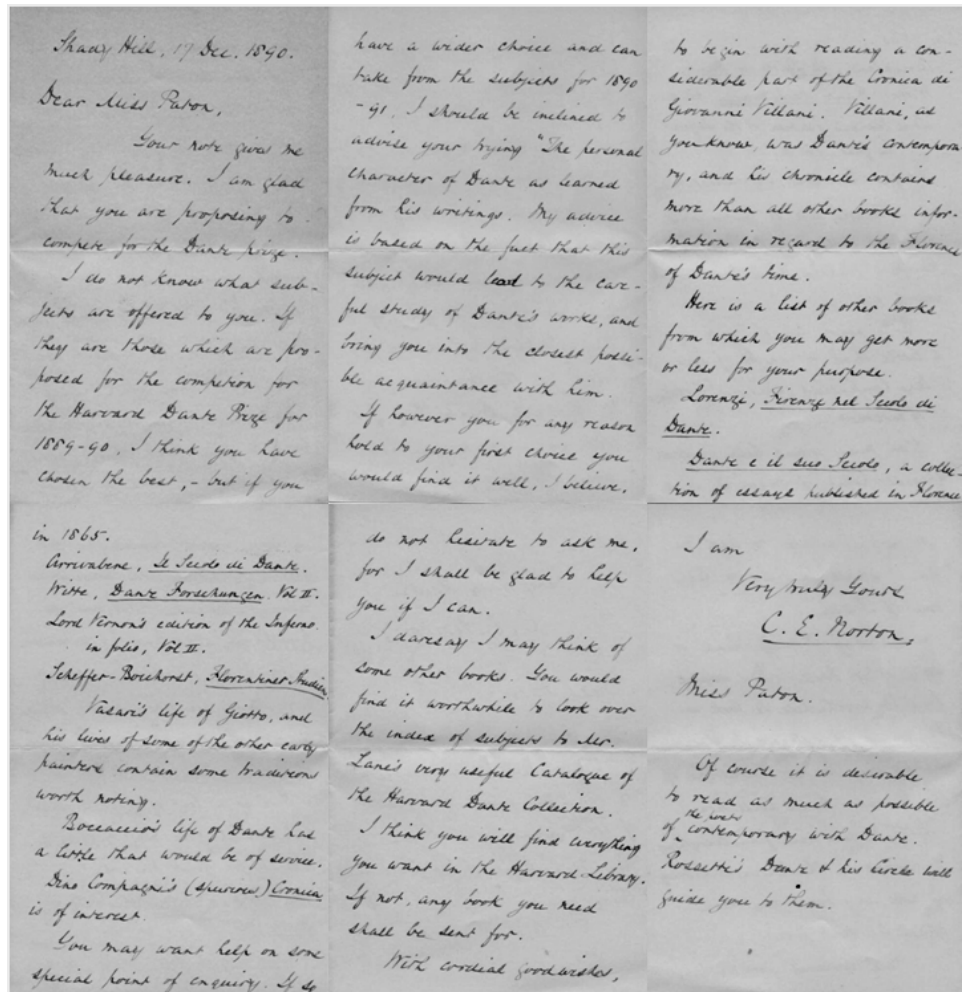 Shady Hill, 17 Dec. 1890.
Dear Miss Paton,
Your note gives me
much pleasure. I am glad
that you are proposing to
compete for the Dante prize.
I do not know what sub-
jects are offered to you. If
they are those which are pro-
posed for the competion for
the Harvard Dante Prize for
1889-90, I think you have
chosen the best, - but if you
have a wider choice and can
take from the subjects for 1890
-91, I should be inclined to
advise your trying "The personal
character of Dante as learned
from his writings. My advice
is based on the fact that this
subject would lead to the care-
ful study of Dante's works, and
bring you into the closest possi-
ble acquaintance with him.
If however you for any reason
hold to your first choice you
would find it well, I believe,
to begin with reading a con-
siderable part of the Cronica di
Giovanni Villani. Villani, as
you know, was Dante's contempora
ry, and his chronicle contains
more than all other books infor-
mation in regard to the Florence
of Dante's time.
Here is a list of other books
from which you may get more
or less for your purpose.
Lorenzi, Firenze nel Secolo di
Dante.
Dante e il suo Secolo, a collec-
tion of essays published in Florence
in 1865.
Arrivabene, Il Secolo di Dante.
Witte, Dante Forschungen. Vol II.
Lord Vernon's edition of the Inferno.
in folio, Vol II.
Scheffer-Boichorst, Florentiner Studien.
Vasari's life of Giotto, and
his lives of some of the other early
painters contain some traditions
worth noting.
Boccaccio's life of Dante has
a little that would be of service.
Dino Compagni's (spurious) Cronica
is of interest.
You may want help on some
special point of enquiry. If so
do not hesitate to ask me,
for I shall be glad to help
you if I can.
I daresay I may think of
some other books. You would
find it worthwhile to look over
the index of subjects to Mr.
Lane's very useful Catalogue of
the Harvard Dante Collection.
I think you will find everything
you want in the Harvard Library.
If not, any book you need
shall be sent for.
With cordial good wishes,
I am
Very truly Yours
C. E. Norton.
Miss Paton.
Of course it is desirable
to read as much as possible
of the poets contemporary with Dante.
Rossetti's Dante & his Circle will
guide you to them.